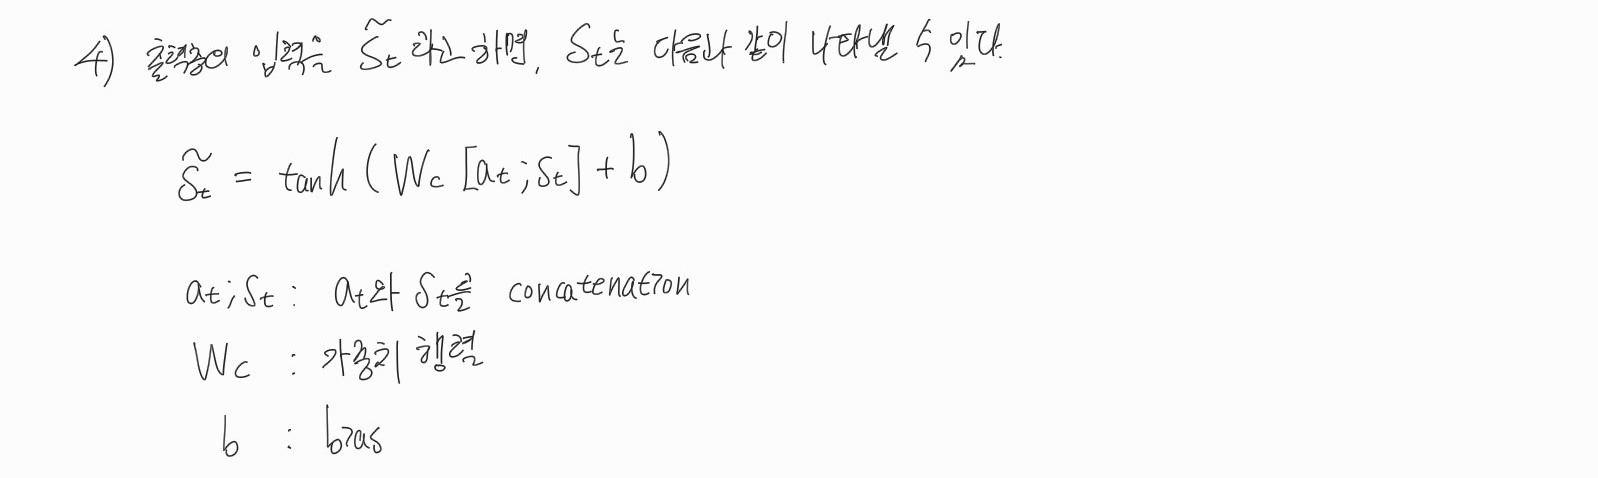 4) 출력층의 입력을 S̃t 라고 하면, St는 다음과 같이 나타낼 수 있다.
S̃t = tanh ( Wc [at ; St] + b )
at ; St : at와 St를 concatenation
Wc : 가중치 행렬
b : bias